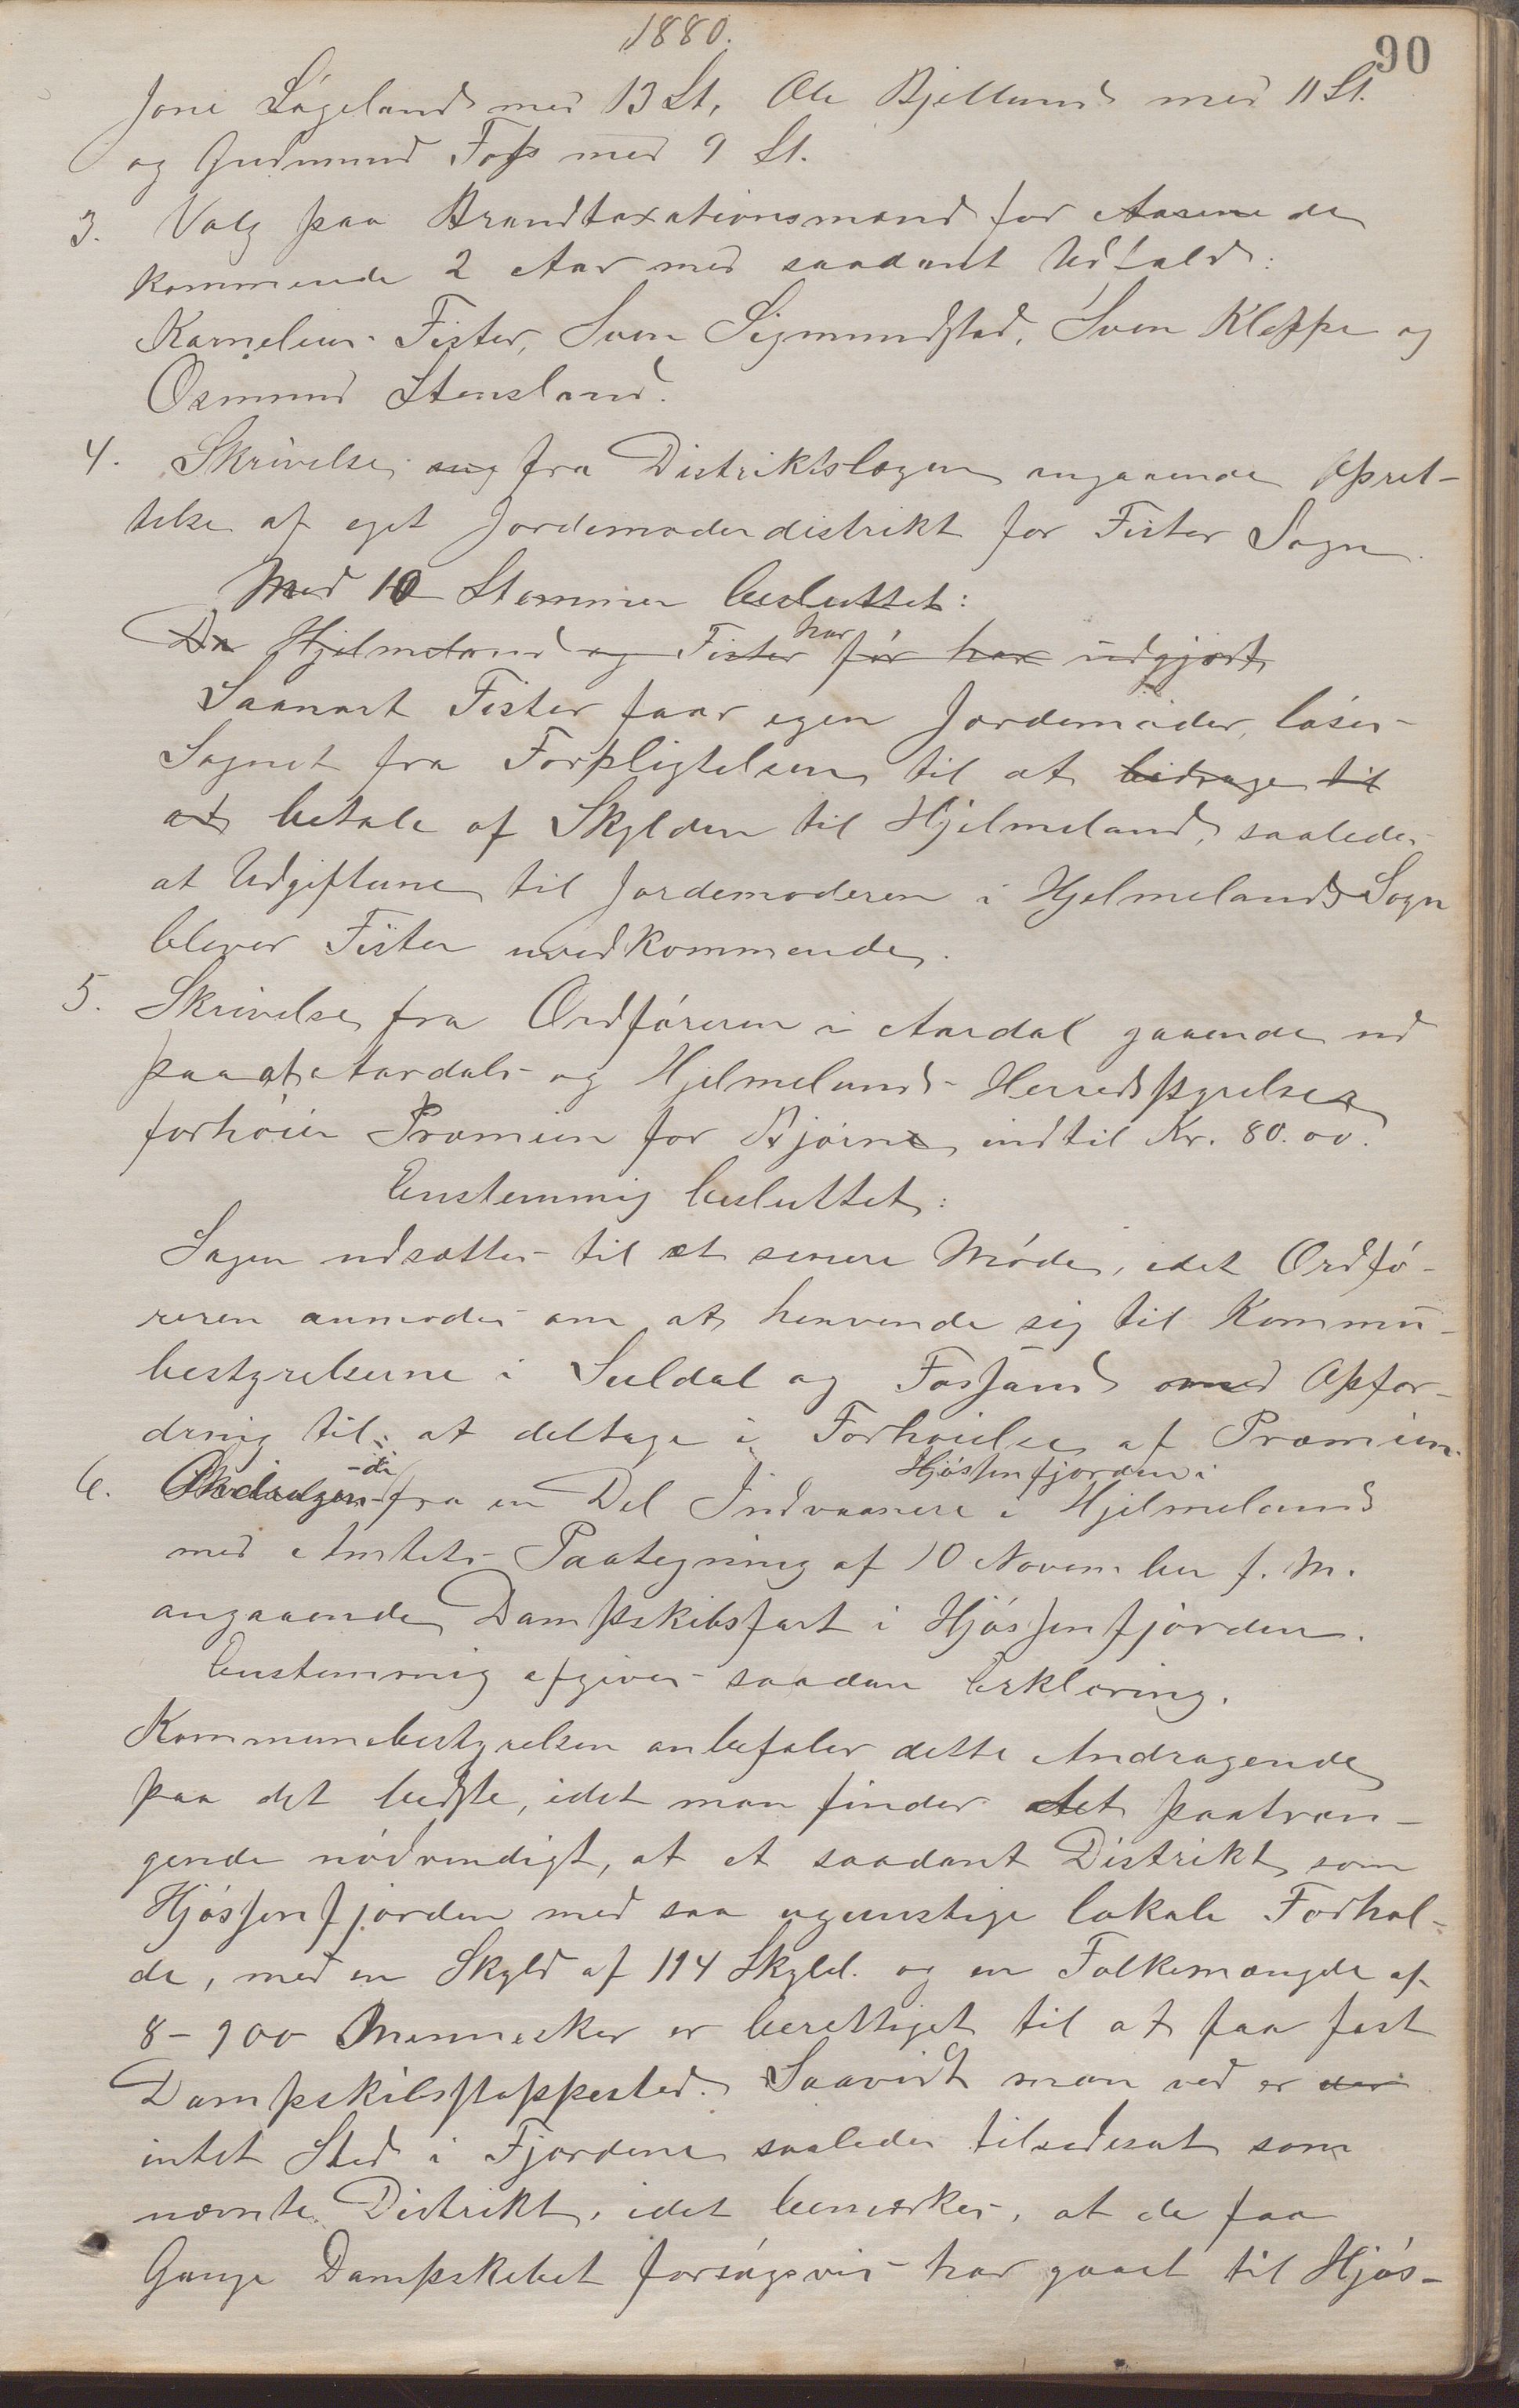 1880.
90
Jone Lageland med 13 St, Ole Bjelland med 11 St.
og Gudmund Foss med 9 St.
3. Valg paa Brandtaxationsmænd for Aarene de
kommende 2 Aar med saadant Udfald:
Kornelius Fister, Sven Sigmundstad, Sven Kleppe og
Osmund Stensland.
4. Skrivelse ang fra Distriktslægen angaaende Opret-
telse af eget Jordemoderdistrikt for Fister Sogn.
Med 10 Stemmer besluttet:
Da Hjelmeland og Fister har før har udgjort
Saasnart Fister faar egen Jordemoder, løses
Sognet fra Forpligtelsen til at bidrage til
at betale af Skylden til Hjelmeland, saaledes
at Udgifterne til Jordemoderen i Hjelmelands Sogn
bliver Fister uvedkommende.
5. Skrivelse fra Ordføreren i Aardal gaaende ud
paa at Aardals og Hjelmelands Herredsstyrelse
forhøier Præmien for Bjørne indtil Kr. 80.00.
Enstemmig besluttet:
Sagen udsættes til et senere Møde, idet Ordfø-
reren anmodes om at henvende sig til Kommu-
bestyrelserne i Suldal og Fossand med Opfor-
dring til at deltage i Forhøielse af Præmien.
6. Andragende fra en Del Indvaanere i Hjøssenfjorden i Hjelmeland
med Amtets Paategning af 10 November f. M.
angaaende Dampskibsfart i Hjøssenfjorden.
Enstemmig afgives saadan Erklæring.
Kommunebestyrelsen anbefaler dette Andragende
paa det bedste, idet man finder det paatræn-
gende nødvendigt, at et saadant Distrikt som
Hjøssenfjorden med saa ugunstige lokale Forhol-
de, med en Skyld af 114 Skyld. og en Folkemængde af
8-900 Mennesker er berettiget til at faa fast
Dampskibsstoppested. Saavidt man ved er der
intet Sted i Fjordene saaledes tilsidesat som
nævnte Distrikt, idet bemærkes, at de faa
Gange Dampskibet forsøgsvis har gaaet til Hjøs-